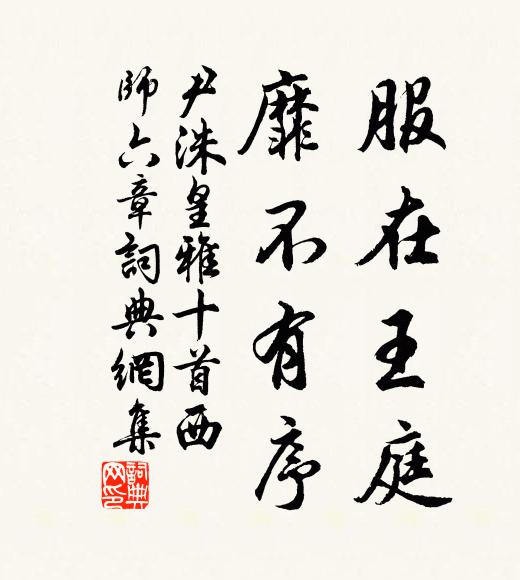 服在王庭
靡不有序
尹洙皇雅十首西
師六章詞典網集
詞典网印